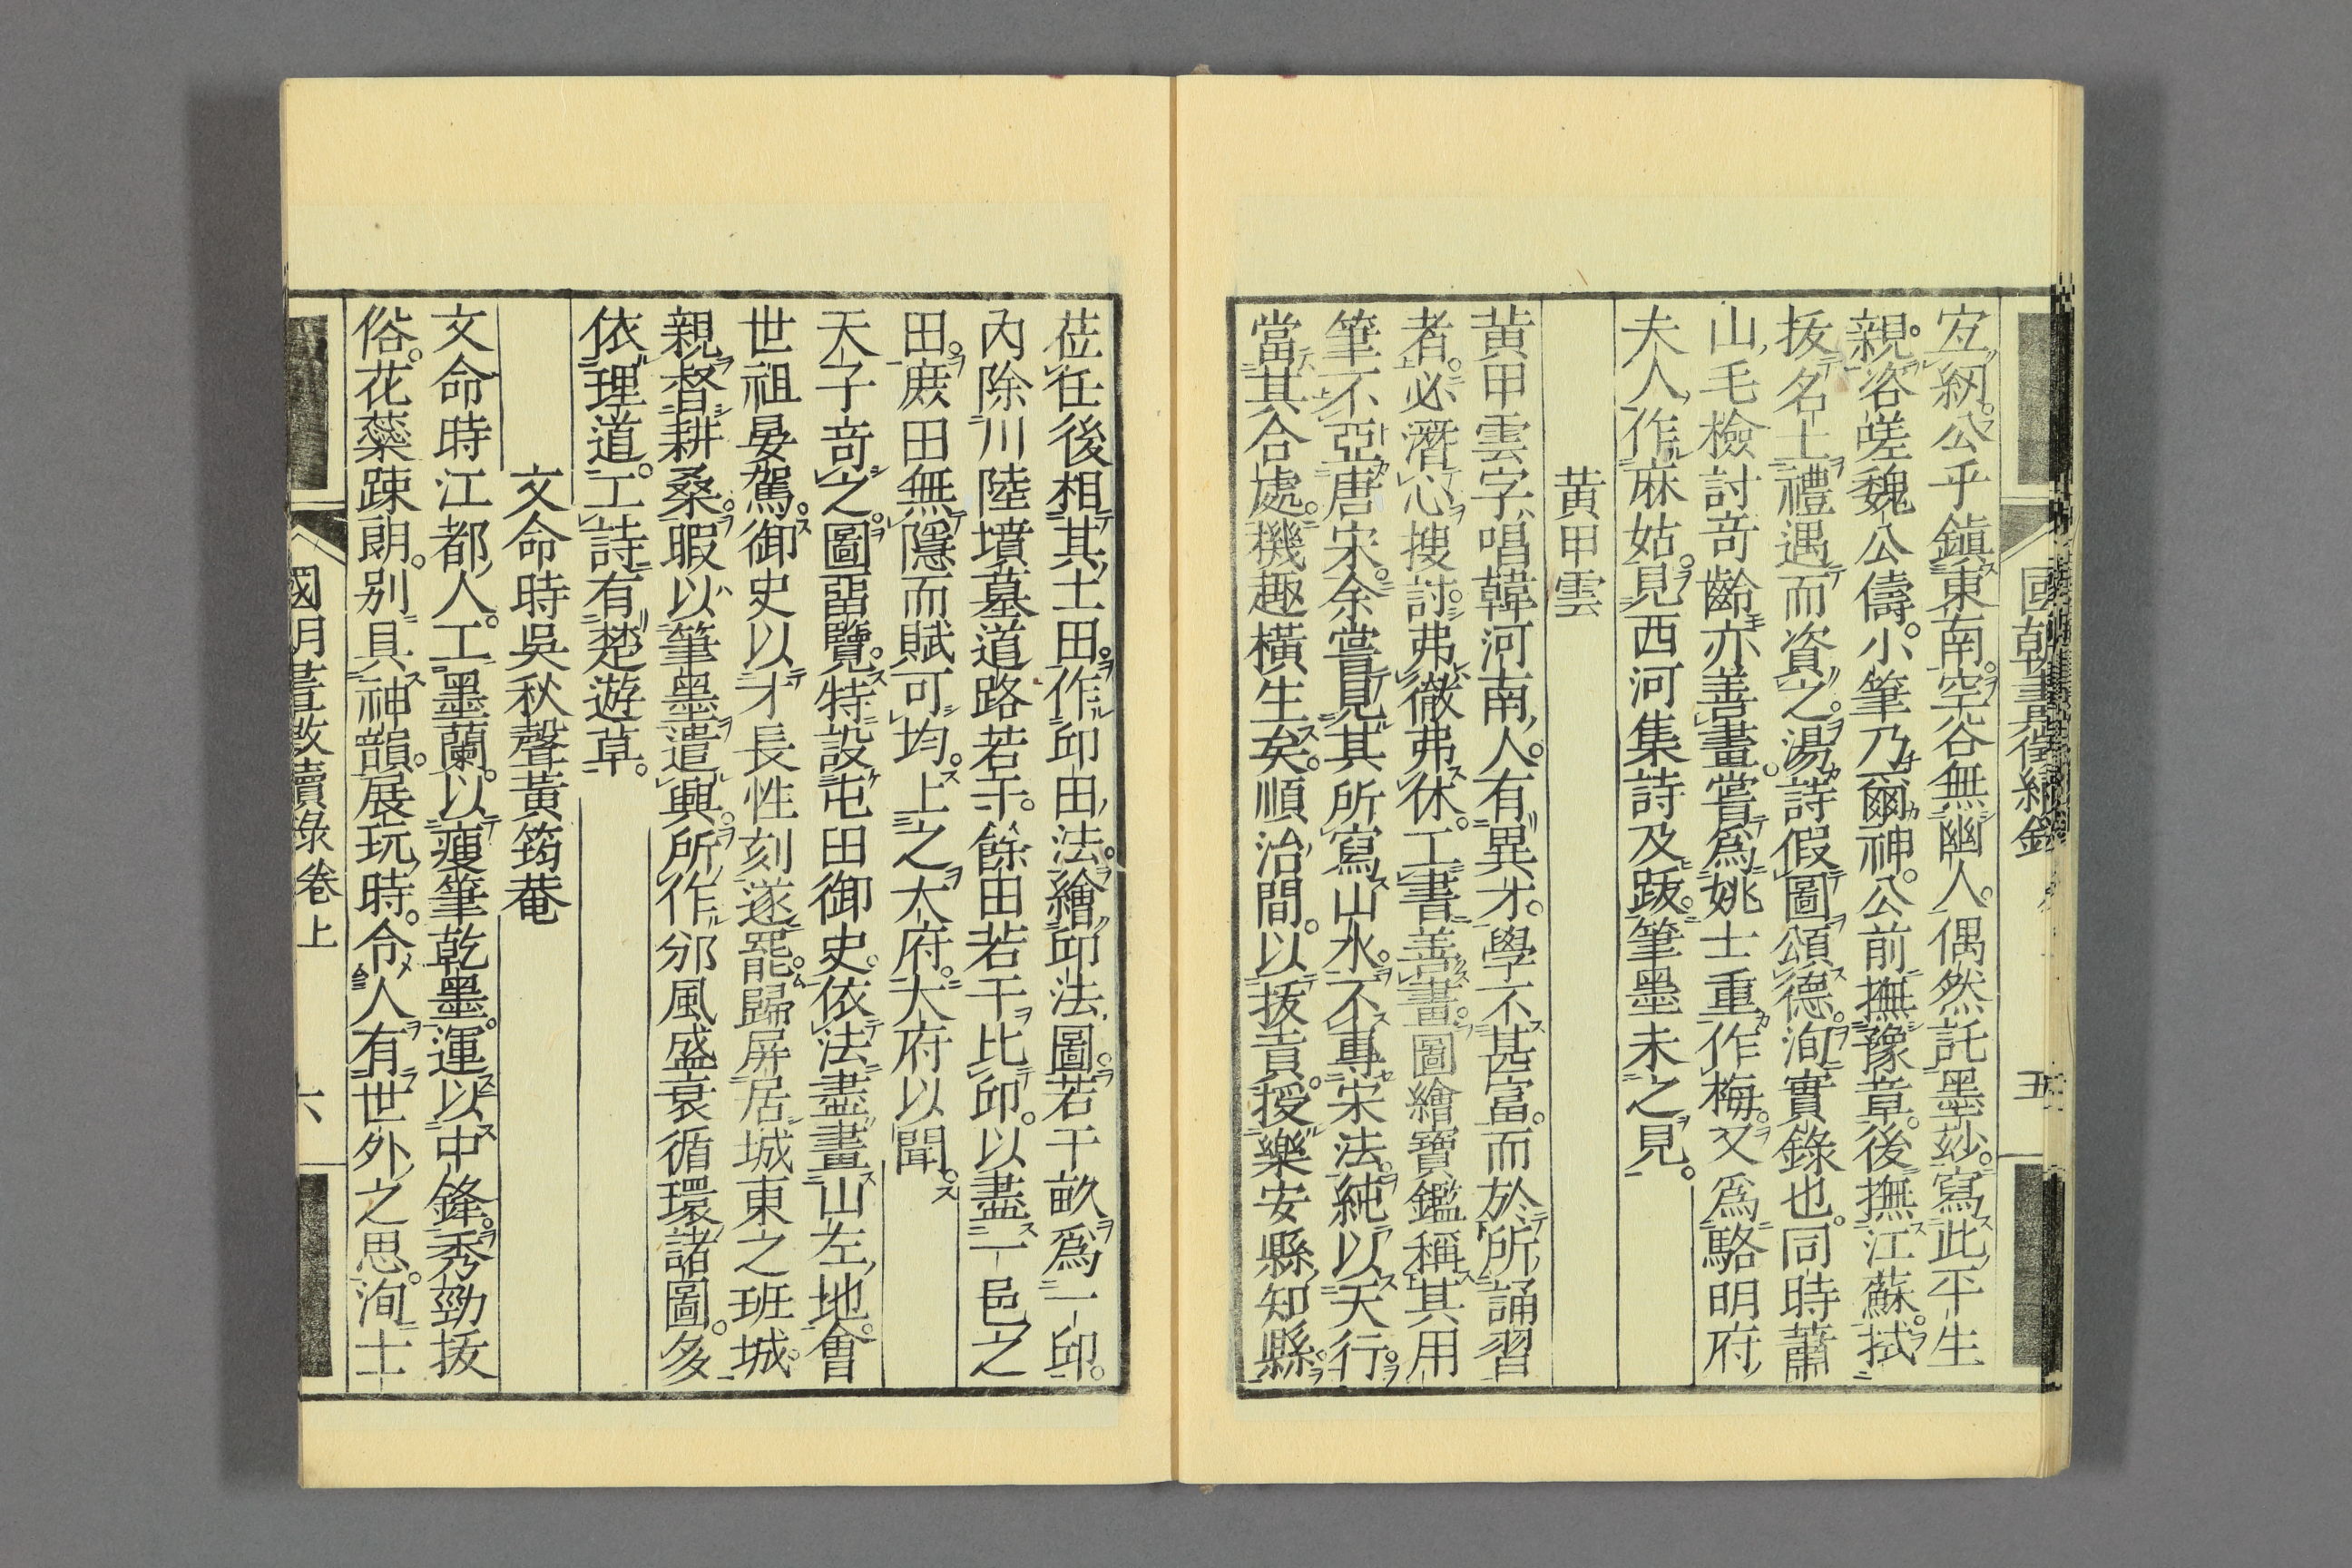 國朝畫徵續錄
五
宜紉公乎鎮東南空谷無幽人偶然託墨玅寫此平生
親咨嗟魏公儔小筆乃爾神公前撫豫章後撫江蘇拭
拔名士禮遇而資之湯詩假圖頌德洵實錄也同時蕭
山毛檢討竒齡亦善畫嘗爲姚士重作梅又爲駱明府
夫人作麻姑見西河集詩及跋筆墨未之見
黄甲雲
黄甲雲字唱韓河南人有異才學不甚富而於所誦習
者必潛心搜討弗徹弗休工書善畫圖繪寶鑑稱其用
筆不亞唐宋余嘗見其所寫山水不專宋法純以天行
當其合處機趣橫生矣順治間以拔貢授樂安縣知縣
莅任後相其土田作卬田法繪卬法圖若干畝爲一卬
內除川陸墳墓道路若干餘田若干比卬以盡一邑之
田厥田無隱而賦可均上之大府大府以聞
天子竒之圖畱覽特設屯田御史依法盡畫山左地會
世祖晏駕御史以才長性刻遂罷歸屏居城東之班城
親督耕桑暇以筆墨遣興所作邠風盛衰循環諸圖多
依理道工詩有楚遊草
文命時吳秋聲黃筠菴
文命時江都人工墨蘭以瘦筆乾墨運以中鋒秀勁拔
俗花蘂踈朗别具神韻展玩時令人有世外之思洵士
國朝畫徵續錄卷上
六